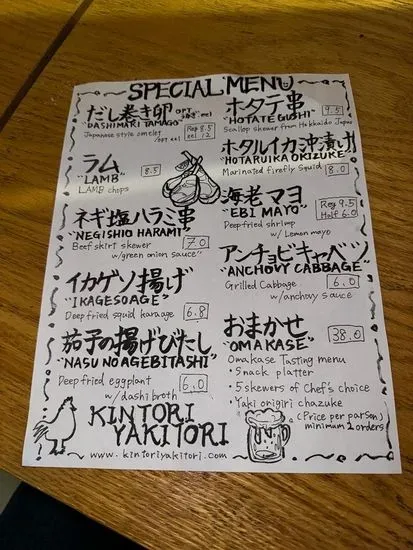 SPECIAL MENU
だし巻き卵 OPT. うなぎ eel
"DASHIMAKI TAMAGO"
Japanese style omelet
/opt eel
Reg 8.5
eel 12
ラム
"LAMB"
LAMB chops
8.5
ネギ塩ハラミ串
"NEGISHIO HARAMI"
Beef skirt skewer
w/green onion sauce"
7.0
イカゲソ揚げ
"IKAGESOAGE"
Deep fried squid karaage
6.8
茄子の揚げびたし
"NASU NO AGEBITASHI"
Deep fried eggplant
w/dashi broth
6.0
ホタテ串
"HOTATE GUSHI"
Scallop skewer from Hokkaido Japan
9.5
ホタルイカ沖漬け
"HOTARUIKA OKIZUKE"
Marinated firefly squid
8.0
海老マヨ
"EBI MAYO"
Deep fried shrimp
w/ Lemon mayo
Reg 9.5
Half 6.0
アンチョビキャベツ
"ANCHOVY CABBAGE"
Grilled Cabbage
w/anchovy sauce
6.0
おまかせ
"OMAKASE"
38.0
Omakase Tasting menu
・Snack platter
・5 skewers of Chef's choice
・Yaki onigiri chazuke
(Price per parson)
minimum 2 orders
KINTORI
YAKITORI
www.kintoriyakitori.com